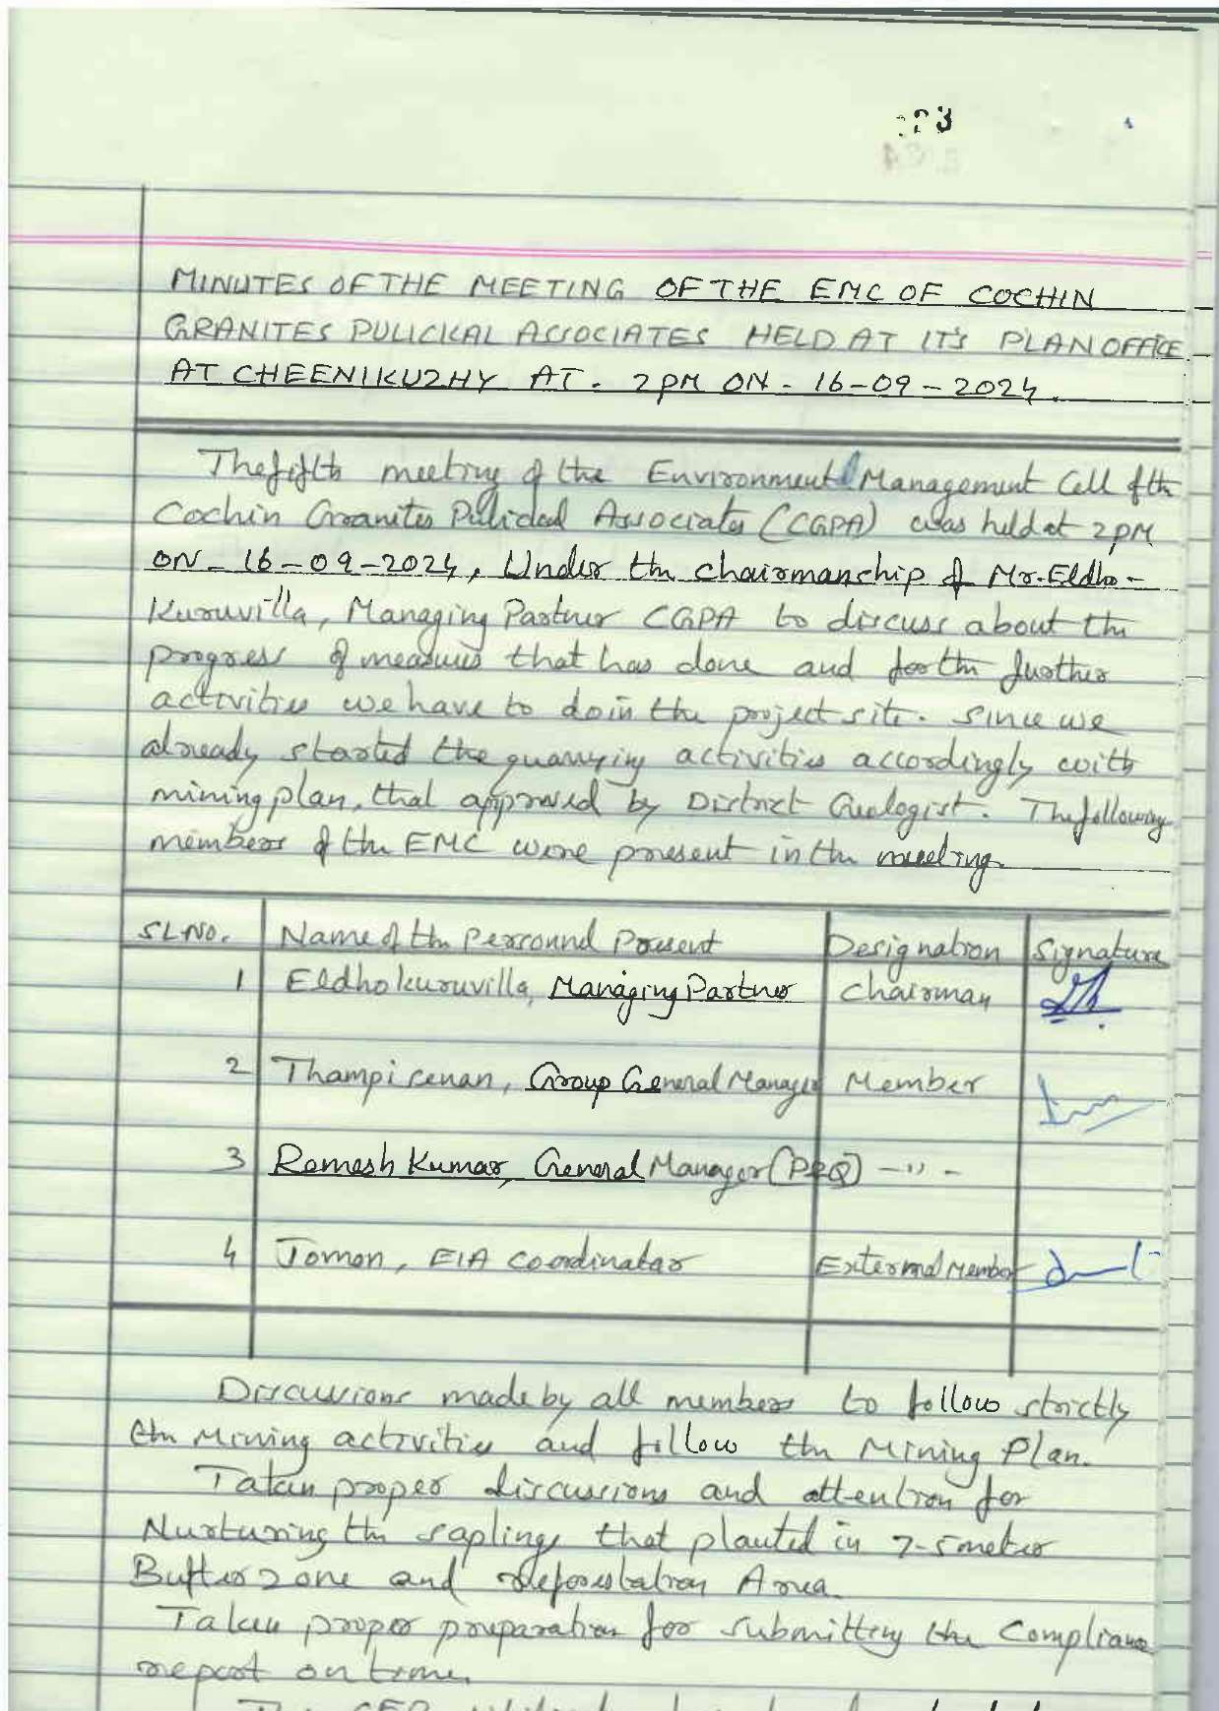 MINUTES OF THE MEETING OF THE EMC OF COCHIN
GRANITES PULICKAL ASSOCIATES HELD AT IT'S PLAN OFFICE
AT CHEENIKUZHY AT. 2 PM ON - 16-09-2024.
The fifth meeting of the Environment Management Cell of the
Cochin Granites Pulickal Associates (CGPA) was held at 2 PM
ON - 16-09-2024, Under the chairmanship of Mr. Eldho -
Kuruvilla, Managing Partner CGPA to discuss about the
progress of measures that has done and for the further
activities we have to do in the project site. Since we
already started the quarrying activities accordingly with
mining plan, that approved by District Geologist. The following
members of the EMC were present in the meeting.
SL.NO. Name of the Personnel Present Designation Signature
1 Eldho kuruvilla, Managing Partner chairman
2 Thampi cenan, Group General Manager Member
3 Remesh Kumar, General Manager (P&Q) -"-
4 Jomon, EIA coordinator External Member
Discussions made by all members to follow strictly
the Mining activities and follow the Mining Plan.
Taken proper discussions and attention for
Nurturing the saplings that planted in 7.5 meter
Buffer zone and reforestation Area.
Taken proper preparation for submitting the Compliance
report on time.